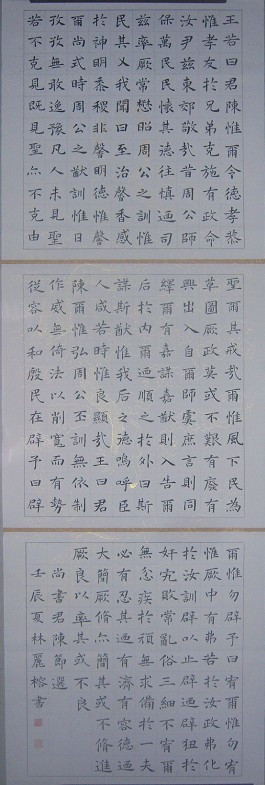 王若曰君陳惟爾令德孝恭
惟孝友於兄弟克施有政命
汝尹茲東郊敬哉昔周公師
保萬民民懷其德往慎迺司
茲率厥常懋昭周公之訓惟
民其乂我聞曰至治馨香感
於神明黍稷非馨明德惟馨
爾尚式時周公之猷訓惟日
孜孜無敢逸豫凡人未見聖
若不克見既見聖亦不克由
聖爾其戒哉爾惟風下民為
草圖厥政莫或不艱有廢有
興出入自爾師虞庶言則同
繹爾有嘉謀嘉猷則入告爾
后於內爾迺順之於外曰斯
謀斯猷惟我后之德嗚呼臣
人咸若時惟良顯哉王曰君
陳爾惟弘周公丕訓無依制
作威無倚法以削寬而有勢
從容以和殷民在辟予曰辟
爾惟勿辟予曰宥爾惟勿宥
惟厥中有弗若於汝政弗化
於汝訓辟以止辟迺辟狃於
奸宄敗常亂俗三細不宥爾
無忿疾於頑無求備於一夫
必有忍其迺有濟有容德迺
大簡厥脩亦簡其或不脩進
厥良以率其或不良
尚書君陳節選
壬辰夏林麗榕書